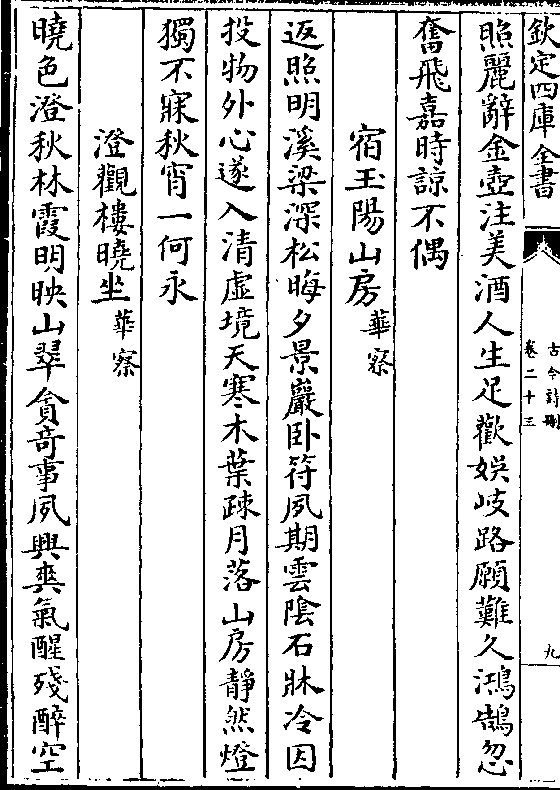 欽定四庫全書
古今詩刪
卷二十三
九
照麗辭金壺注美酒人生足歡娛岐路願難久鴻鵠忽
奮飛嘉時諒不偶
宿玉陽山房華察
返照明溪梁深松晦夕景巖卧符夙期雲陰石牀冷因
投物外心遂入清虛境天寒木葉疎月落山房靜然燈
獨不寐秋宵一何永
澄觀樓曉坐華察
曉色澄秋林霞明映山翠貪奇事夙興爽氣醒殘醉空